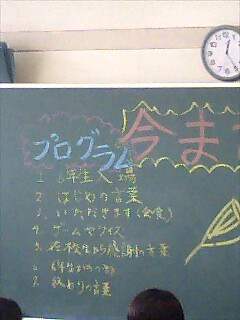 今ま
プログラム
1. 6年生入場
2. はじめの言葉
3. いただきます(会食)
4. ゲームやクイズ
5. 在校生から感謝の言葉
6. 6年生からの
7. 終わりの言葉